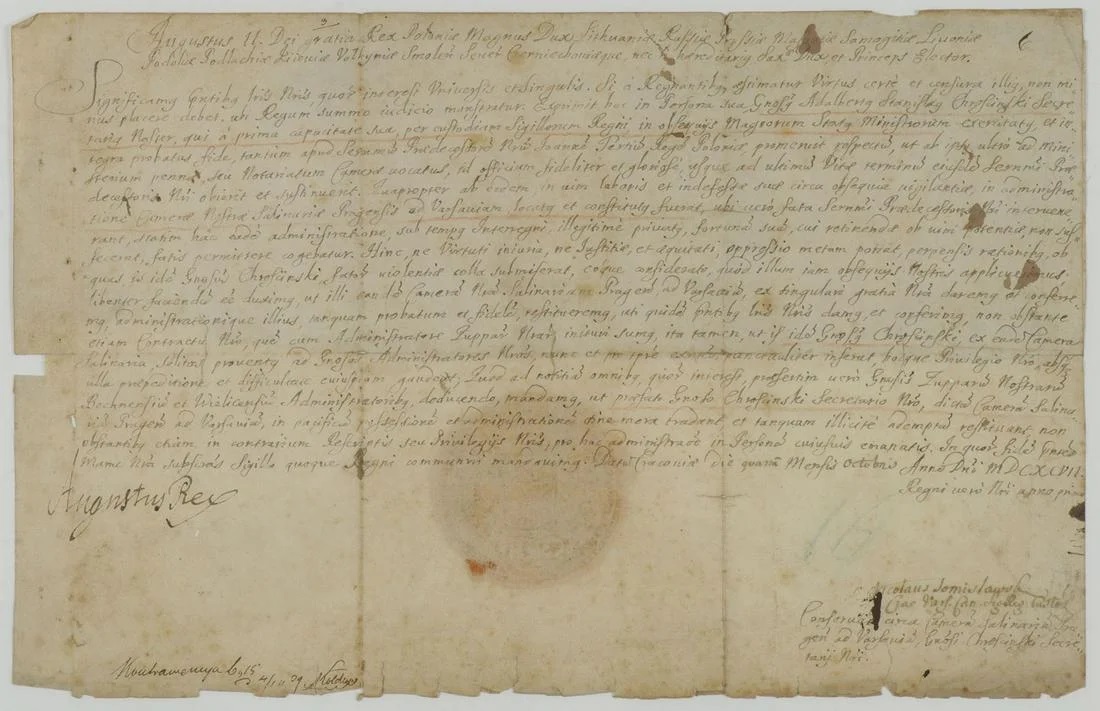 Augustus II. Dei gratia Rex Poloniæ Magnus Dux Lithuaniæ Russiæ Prussiæ Samogitiæ Livoniæ
6
Podoliæ Podlachiæ Kijoviæ Volhyniæ Smolen Sever Czerniechoviæque, nec n hæreditarig Sax Dux et Princeps Elector.
Significamg pntibg lris Nris, quor interest Universis et singulis. Si à Regnantibg æstimatur Virtus certè et censura illig, non mi-
nus placere debet, ubi Regum summo iudicio monstratur. Exprimit hoc in Persona sua Gnosg Adalbertg Stanislag Chrosinski Secre-
tarig Noster, qui à prima capacitate sua, per custodiam Sigillorum Regni in obsequijs Magnorum Statg Ministrorum exercitatg, et in-
tegra probatus fide, tantum apud Serenmum Prædecessorem Nrm Joannem Tertium Regem Poloniæ, promeruit respectum, ut ab ipso ultro ad Mini-
sterium pennæ, seu Notariatum Cameræ vocatus, id officium fideliter et gloriose, usque ad ultimum Vitæ terminum eiusdem Serenmi Præ-
decessoris Nri obiverit et sustinuerit. Quapropter ab eodem, in vim laboris et indefessæ suæ circa obsequia vigilantiæ, in administra-
tione Cameræ Nostræ Salinariæ Pragensis ad Varsaviam, locatg et constitutg fuerat, ubi verò fata Serenmi Prædecessoris Nri intervene-
rant, statim hac eadem administratione, sub tempg Interregni, illegitimè privatg, fortunam suam, cui retinendæ ob vim potentiæ non suf-
fecerat, fatis permittere cogebatur. Hinc, ne Virtuti iniuria, ne Justitiæ, et æquitati, oppressio metam ponat, perpensis rationibg, ob
quas is idem Gnosus Chrosinski, fatorum violentiæ colla submiserat, eoque considerato, quod illum iam obsequijs Nostris applicuerimus
libenter faciendum esse duximg, ut illi eandem Cameram Nram Salinariam Pragen ad Varsaviam, ex singulari gratia Nra daremg et conferre-
mg, administrationique illius, tanquam probatum et fidelem, restitueremg, uti quidem pntibg lris Nris damg, et conferimg non obstante
etiam Contractu Nro, quem cum Administratore Zuppar Nrar inivimg, ita tamen, ut is idem Gnosg Chrosinski, ex eadem Camera
Salinaria, solitos proventg ad Gnosos Administratores Nros, nunc et pro tpre existen panctualiter inferat hocque Privilegio Nro absq
ulla præpeditione et difficultate cuiuspiam gaudeat; Quod ad notitiam omnibg, quor interest, præsertim verò Gnosis Zupparum Nostrarum
Bochnensium et Wielicensium Administratoribg, deducendo, mandamg, ut præfato Gnoso Chrosinski Secretario Nro, dictam Cameram Salina-
riam Pragen ad Varsaviam, in pacificam possessionem et administrationem sine mora tradant, et tanquam illicitè ademptam restituant, non
obstantibg etiam in contrarium Rescriptis seu Privilegijs Nris, pro hac administraoe in Personam cuiusvis emanatis. In quor fidem pntes
Manu Nra subscriptas Sigillo quoque Regni communiri mandavimg. Datum Cracoviæ die quarta Mensis Octobris Anno Dni MDCXCVII.
Regni verò Nri anno primo
Augustus Rex
Nicolaus
Conservatio circa Cameram Salinariam Pra-
gen ad Varsaviam, Gnosi Chrosinski Secre-
tarij Nri.